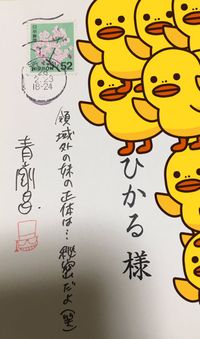 日本郵便
NIPPON
52
18-24
ひかる 様
領域外の妹の正体は…秘密だよ(笑)
青山剛昌